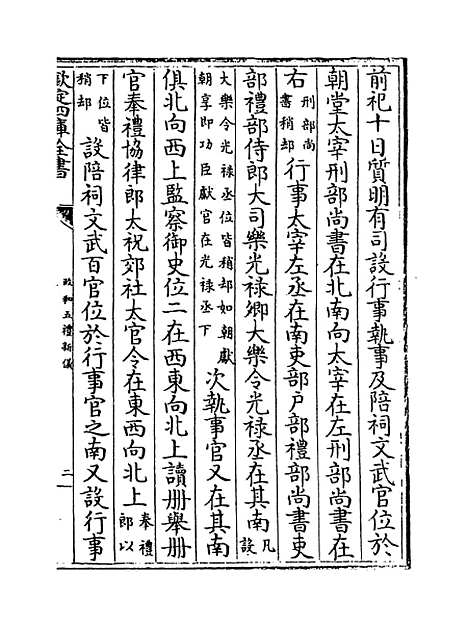 前祀十日質明有司設行事執事及陪祠文武官位於
朝堂太宰刑部尚書在北南向太宰在左刑部尚書在
右刑部尚書稍却行事太宰左丞在南吏部戶部禮部尚書吏
部禮部侍郎大司樂光禄卿大樂令光禄丞在其南凡設
大樂令光禄丞位皆稍却如朝獻朝享即功臣獻官在光禄丞下次執事官又在其南
俱北向西上監察御史位二在西東向北上讀册舉册
官奉禮協律郎太祝郊社太官令在東西向北上奉禮郎以
下位皆稍却設陪祠文武百官位於行事官之南又設行事
欽定四庫全書
政和五禮新儀
二